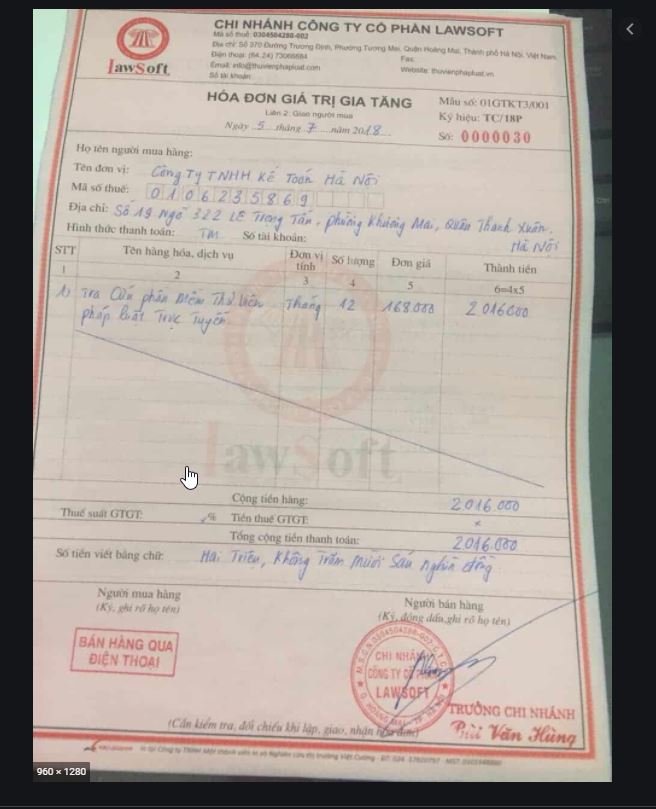 CHI NHÁNH CÔNG TY CỔ PHẦN LAWSOFT
Mã số thuế: 0304504288-002
Địa chỉ: Số 370 Đường Trương Định, Phường Tương Mai, Quận Hoàng Mai, Thành phố Hà Nội, Việt Nam
Điện thoại: (84.24) 73066684 Fax:
Email: info@thuvienphapluat.com Website: thuvienphapluat.vn
Số tài khoản:
LawSoft
HÓA ĐƠN GIÁ TRỊ GIA TĂNG
Liên 2: Giao người mua
Ngày 5 tháng 7 năm 2018
Mẫu số: 01GTKT3/001
Ký hiệu: TC/18P
Số: 0000030
Họ tên người mua hàng:
Tên đơn vị: Công Ty TNHH Kế Toán Hà Nội
Mã số thuế: 0106235869
Địa chỉ: Số 19 Ngõ 322 Lê Trọng Tấn, phường Khương Mai, Quận Thanh Xuân, Hà Nội
Hình thức thanh toán: TM Số tài khoản:
STT Tên hàng hóa, dịch vụ Đơn vị tính Số lượng Đơn giá Thành tiền
1 2 3 4 5 6=4x5
1) Tra Cứu phần mềm Thư Viện Tháng 12 168.000 2.016.000
pháp luật Trực Tuyến
LawSoft
Cộng tiền hàng: 2.016.000
Thuế suất GTGT: % Tiền thuế GTGT: x
Tổng cộng tiền thanh toán: 2.016.000
Số tiền viết bằng chữ: Hai Triệu, Không Trăm Mười Sáu nghìn đồng
Người mua hàng
(Ký, ghi rõ họ tên)
Người bán hàng
(Ký, đóng dấu, ghi rõ họ tên)
BÁN HÀNG QUA
ĐIỆN THOẠI
M.S.C.N:0304504288-002-C.T.C.P
CHI NHÁNH
CÔNG TY CỔ PHẦN
LAWSOFT
Q. HOÀNG MAI - TP. HÀ NỘI
TRƯỞNG CHI NHÁNH
Bùi Văn Hùng
(Cần kiểm tra, đối chiếu khi lập, giao, nhận hóa đơn)
960 × 1280